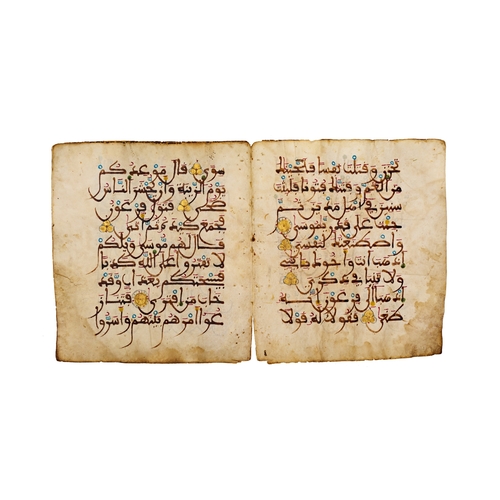 تحزن وقتلت نفسا فنجينك
من الغم وفتنك فتونا فلبثت
سنين في اهل مدين ثم
جئت على قدر يموسى
واصطنعتك لنفسي اذهب
انت واخوك بايتي
ولا تنيا في ذكري
اذهبا الى فرعون انه
طغى فقولا له قولا
سوى قال موعدكم
يوم الزينة وان يحشر الناس
ضحى فتولى فرعون
فجمع كيده ثم اتى
قال لهم موسى ويلكم
لا تفتروا على الله كذبا
فيسحتكم بعذاب وقد
خاب من افترى فتنز
عوا امرهم بينهم واسروا